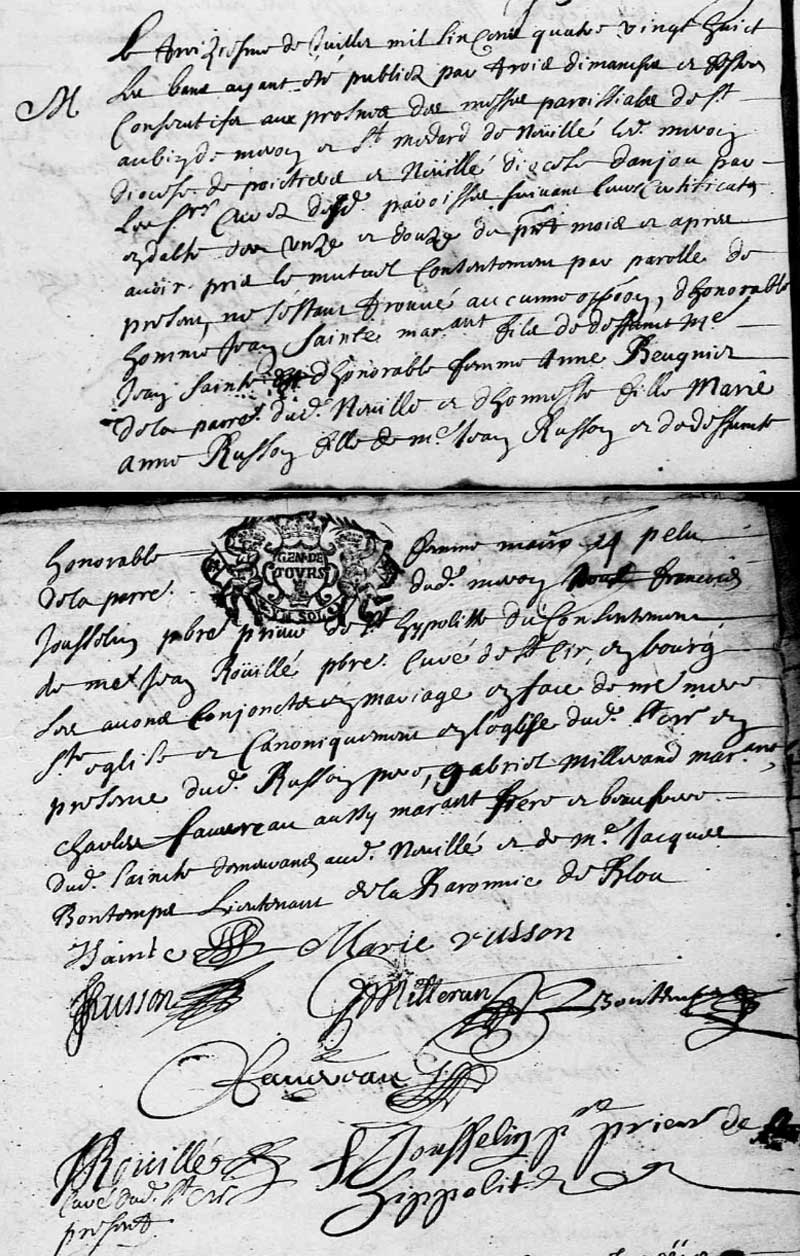 Le treiziesme de Juillet mil six cent quatre vingt huict
M Les bans ayant été publiez par trois dimanches et festes
Consecutifs aux prosnes des messes paroissiales de St
aubin de mevon et St medard de Noüillé led. mevon
diocese de poictiers et Noüillé diocese danjou par
Les Srs Curez desd. paroisses suivant leurs certificats
en datte des Unze et douze du pnt mois et apres
avoir pris le mutuel Consentement par parolle de
present, ne sestant trouvé aucunne opposon, dhonorable
homme Jean Sainte marant fils de deffunct Me
Jean Sainte et dhonorable femme Anne Beugnier
de la parre. dud. Noüille et dhonneste fille Marie
anne Russon fille de me Jean Russon et de deffuncte
honorable femme marie pelu
GEN. DE
TOVRS
VN SOL
de la parre. dud. mevon Nous francois
Jousselin pbre prieur de St hyppolitte du Consentement
de mre Jean Roüillé pbre. Curé de St Cir, en bourg
Les avons Conjoincts en mariage en face de nre mere
Ste eglise et Canoniquement en leglise dud. St cir en
presence dud. Russon pere, gabriel Millerand marant,
charles fauereau aussy marant frere et beaufrere
dud. Saincte demeurans aud. Noüillé et de me Jacques
Bontemps Lieutenant de la Baronnie de Blou
JSainte Marie russon
JRusson GMilleran Bontemps
Fauereau
JRouillé F Jousselin pre prieur de St
Curé dud. St Cir hippolite
present